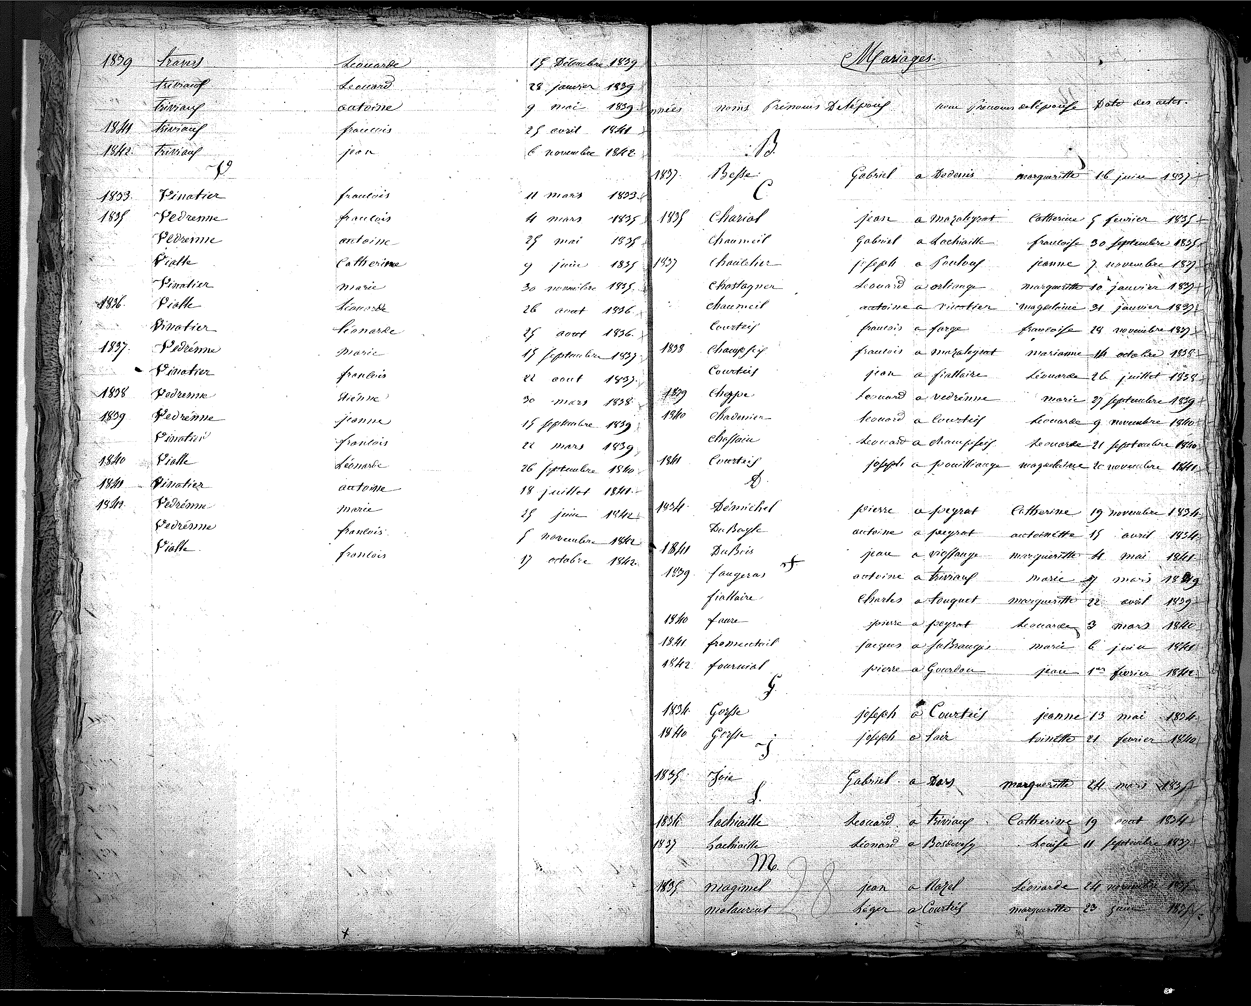 1839 travers Léonarde 15 Décembre 1839
triviaux Léonard 28 janvier 1839
triviaux antoine 9 mai 1839
1841 triviaux francois 25 avril 1841
1842 triviaux jean 6 novembre 1842
V
1833 Vinatier francois 11 mars 1833
1835 Vedrenne francois 4 mars 1835
Vedrenne antoine 25 mai 1835
Vialle Catherine 9 juin 1835
Vinatier marie 30 novembre 1835
1836 Vialle Léonarde 26 aout 1836
Vinatier Léonarde 25 aout 1836
1837 Vedrénne marie 15 septembre 1837
Vinatier francois 22 aout 1837
1838 Vedrenne etiénne 30 mars 1838
1839 Vedrénne jeanne 15 septembre 1839
Vinatier francois 22 mars 1839
1840 Vialle Léonarde 26 septembre 1840
1841 Vinatier antoine 18 juillet 1841
1842 Vedrénne marie 25 juin 1842
Vedrénne francois 5 novembre 1842
Vialle francois 17 octobre 1842
Mariages.
nnées noms Prénoms De Lépoux nom prénoms de lépouse Date des actes.
B.
1837 Besse Gabriel a Dodenis margueritte 16 juin 1837
C
1835 Chariol jean a mazaleyrat Catherine 5 fevrier 1835
Chaumeil Gabriel a Lachiaille francoise 30 septembre 1835
1837 joseph a jeanne 7 novembre 1837
Chastagner Léonard a orliange margueritte 10 janvier 1837
Chaumeil antoine a vinatier magdelaine 31 janvier 1837
Courteix francois a farge francoise 28 novembre 1837
1838 Champseix francois a mazaleyrat marianne 14 octobre 1838
Courteix jean a fiallaire Léonarde 26 juillet 1838
1839 Choppe Léonard a vedrénne marie 27 septembre 1839
1840 Chadenier Léonard a Courteix Léonarde 9 novembre 1840
Chassain Léonard a champseix Léonarde 21 septembre 1840
1841 Courteix joseph a pouillange magdelaine 20 novembre 1841
D
1834 Démichel pierre a peyrat Catherine 19 novembre 1834
antoine a peyrat antoinette 15 avril 1834
1841 DuBois jean a margueritte 4 mai 1841
1839 faugeras antoine a triviaux marie 7 mars 1839
fiallaire Charles a margueritte 22 avril 1839
1840 faure pierre a peyrat Léonarde 3 mars 1840
1841 fromenteil jacques a marie 6 juin 1841
1842 fournial pierre a Gourdon jean 1er fevrier 1842
G
1834 Gorsse joseph a Courteix jeanne 13 mai 1834
1840 Gorsse joseph a toinette 21 fevrier 1840
J
1835 Joie Gabriel a Dars margueritte 24 mars 1835
L.
1834 Lachiaille Léonard a triviaux Catherine 19 aout 1834
1837 Lachiaille Léonard a Louise 11 septembre 1837
M
1835 magimel jean a Mazel Léonarde 24 novembre 1835
malaurent Léger a Courteix margueritte 23 juin
28